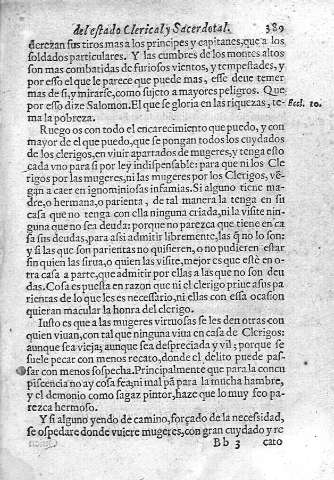 del estado Clerical y Sacerdotal. 389
derezan sus tiros mas a los principes y capitanes, que a los
soldados particulares. Y las cumbres de los montes altos
son mas combatidas de furiosos vientos, y tempestades, y
por esso el que le parece que puede mas, esse deue temer
mas de si, y mirarse, como sujeto a mayores peligros. Que
por esso dize Salomon. El que se gloria en las riquezas, te- Eccl. 10.
ma la pobreza.
Ruego os con todo el encarecimiento que puedo, y con
mayor de el que puedo, que se pongan todos los cuydados
de los clerigos, en viuir apartados de mugeres, y tenga esto
cada vno para si por ley indispensable: para que ni los Cle
rigos por las mugeres, ni las mugeres por los Clerigos, vẽ-
gan a caer en ignominiosas infamias. Si alguno tiene ma-
dre, o hermana, o parienta, de tal manera la tenga en su
casa que no tenga con ella ninguna criada, ni la visite nin-
guna que no sea deuda: porque no parezca que tiene en ca
sa sus deudas, para assi admitir libremente, las q̃ no lo son:
y si las que son parientas no quisieren, o no pudieren estar
sin quien las sirua, o quien las visite, mejor es que estè en o-
tra casa a parte, que admitir por ellas a las que no son deu
das. Cosa es puesta en razon que ni el clerigo priue a sus pa
rientas de lo que les es necessario, ni ellas con essa ocasion
quieran macular la honra del clerigo.
Iusto es que a las mugeres virtuosas se les den otras con
quien viuan, con tal que ninguna viua en casa de Clerigos:
aunque sea vieja; aunque sea despreciada y vil; porque se
suele pecar con menos recato, donde el delito puede pas-
sar con menos sospecha. Principalmente que para la concu
piscencia no ay cosa fea; ni mal pã para la mucha hambre,
y el demonio como sagaz pintor, haze que lo muy feo pa-
rezca hermoso.
Y si alguno yendo de camino, forçado de la necessidad,
se ospedare donde vuiere mugeres, con gran cuydado y re
Bb 3 cato